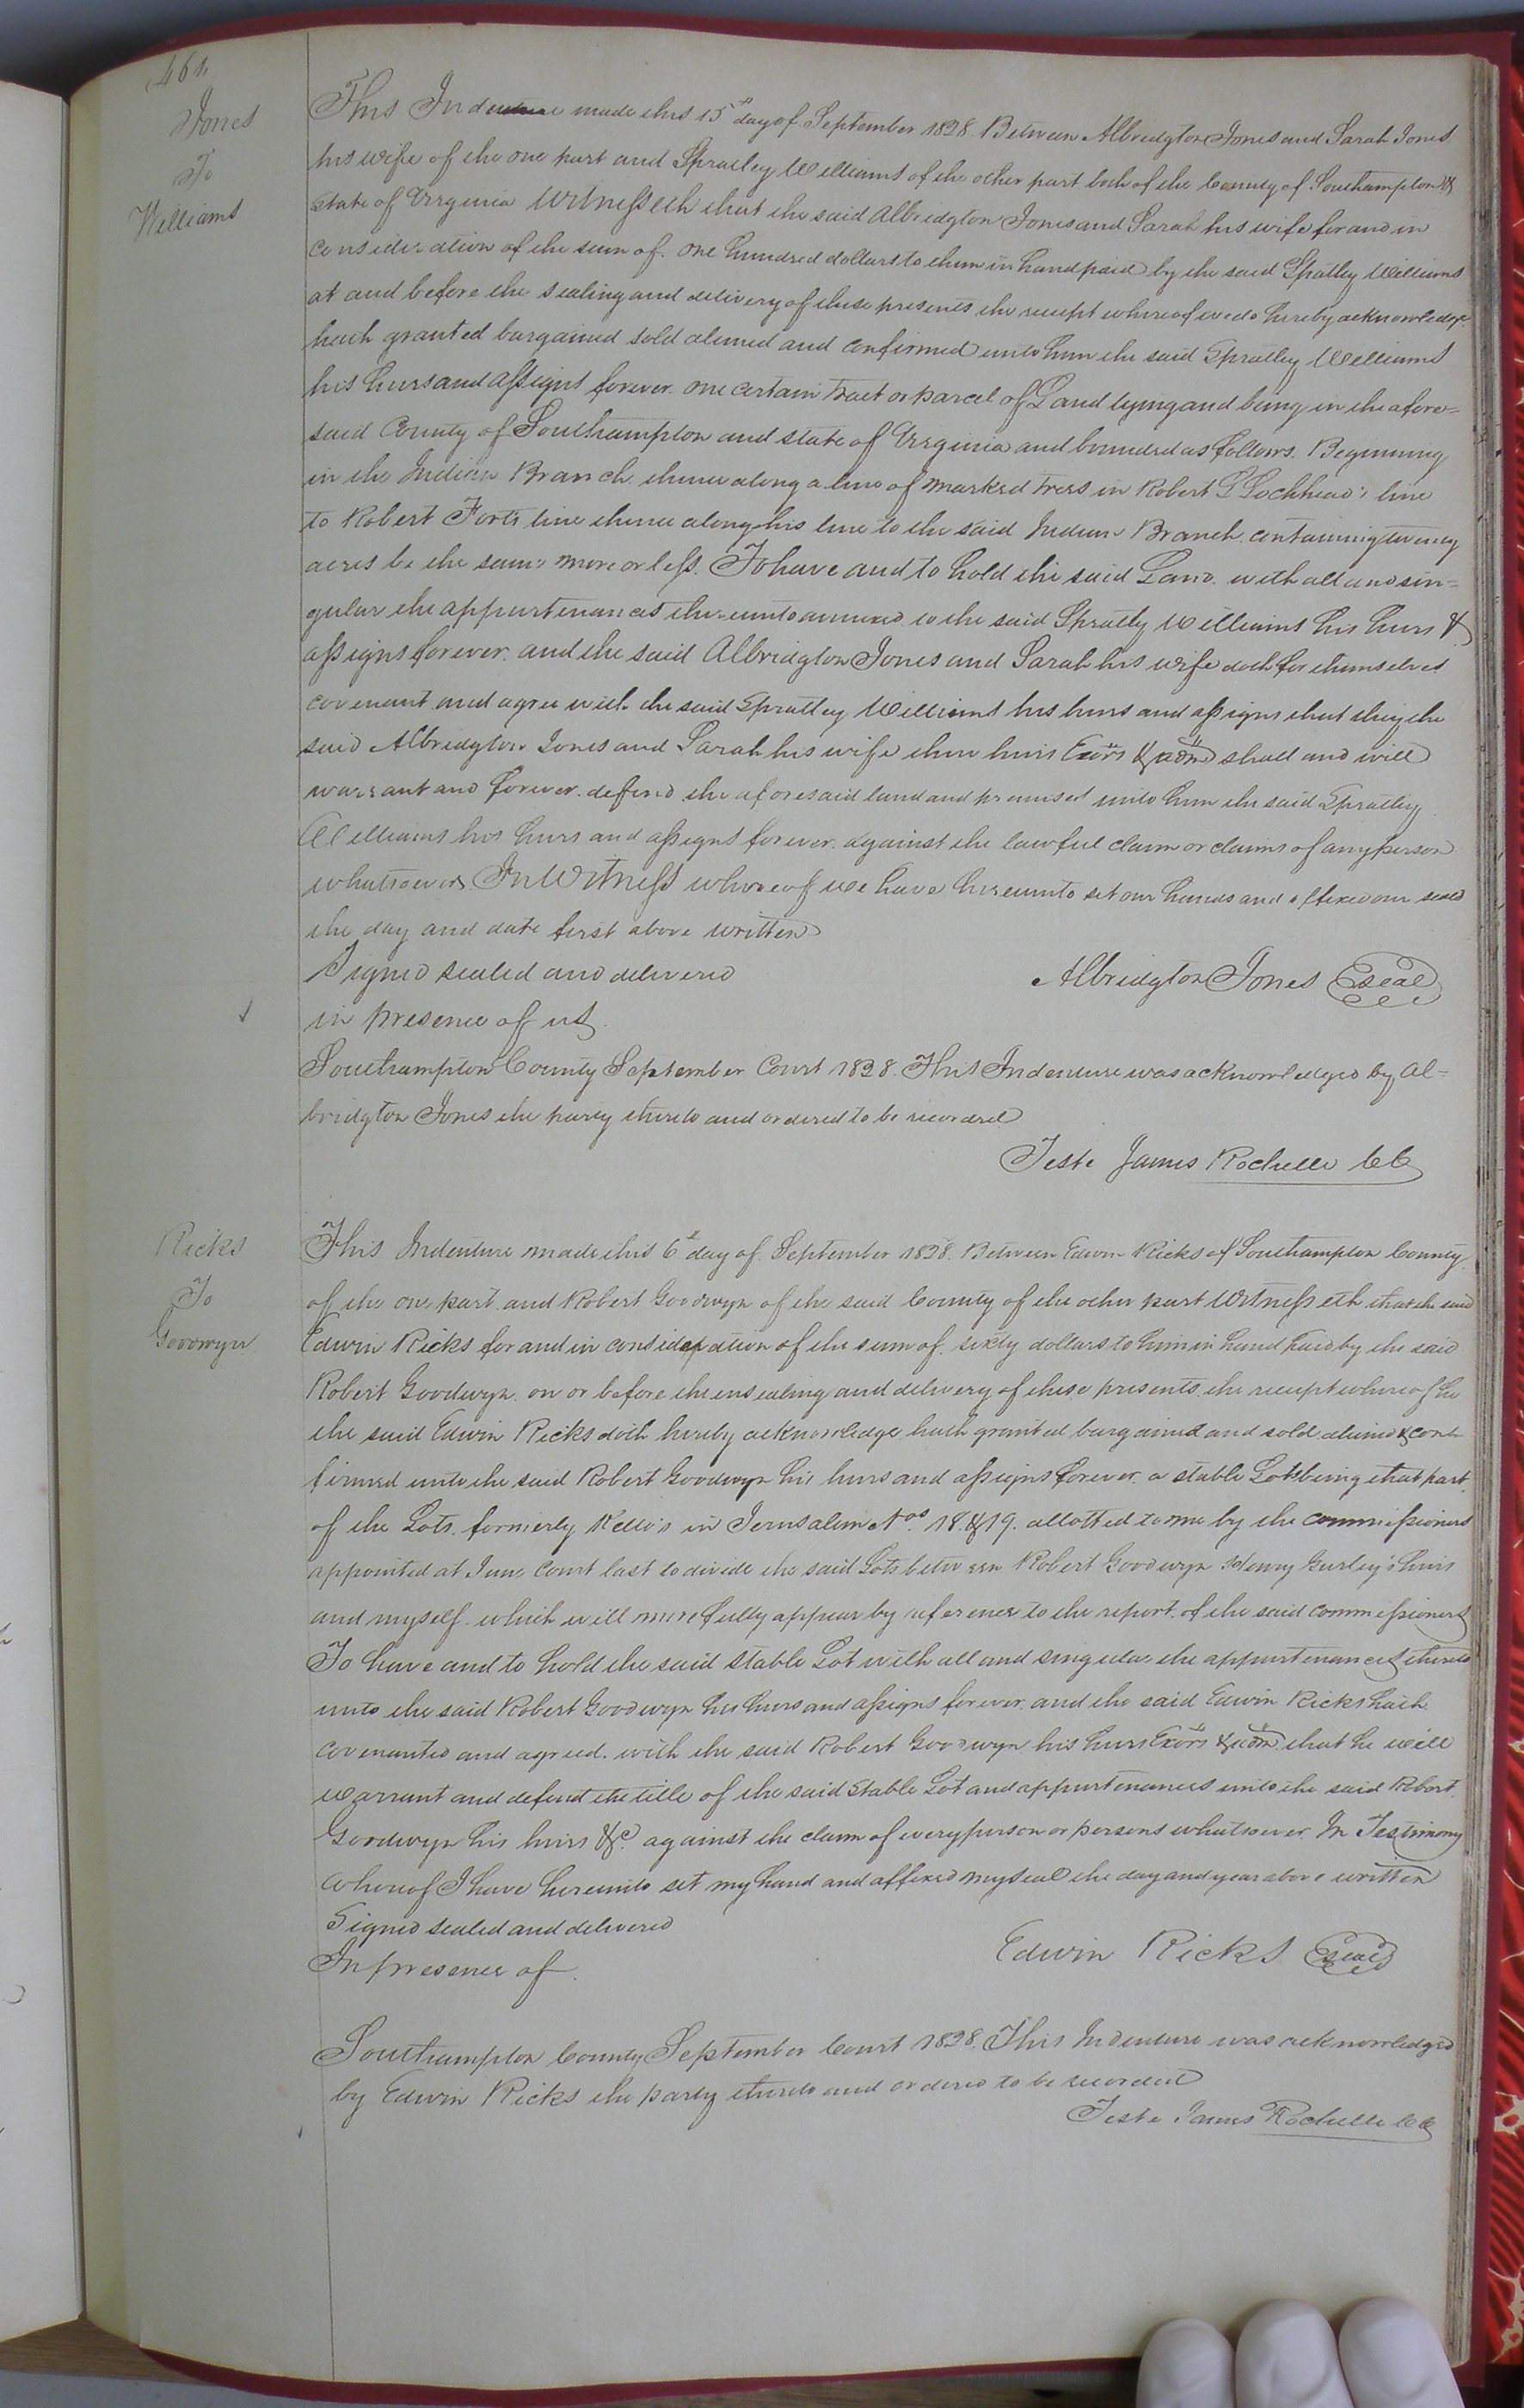 461
Jones
To
Williams
This Indenture made this 15th day of September 1828. Between Albridgton Jones and Sarah Jones
his wife of the one part and Spratley Williams of the other part both of the County of Southampton &
state of Virginia Witnesseth that the said Albridgton Jones and Sarah his wife for and in
consideration of the sum of. one hundred dollars to them in hand paid by the said Spratley Williams
at and before the sealing and delivery of these presents the receipt whereof we do hereby acknowledge
hath granted bargained sold aliened and confirmed unto him the said Spratley Williams
his heirs and assigns forever. one certain tract or parcel of Land lying and being in the afore=
said County of Southampton and state of Virginia and bounded as follows. Beginning
in the Indian Branch thence along a line of marked trees in Robert G Lochhead's line
to Robert Forts line thence along his line to the said Indian Branch. containing twenty
acres be the same more or less. To have and to hold the said Land. with all and sin=
gular the appurtenances thereunto annexed. to the said Spratley Williams his heirs &
assigns forever. and the said Albridgton Jones and Sarah his wife doth for themselves
covenant and agree with the said Spratley Williams his heirs and assigns that they the
said Albridgton Jones and Sarah his wife their heirs Exors & adm shall and will
warrant and forever. defend the aforesaid land and premises unto him the said Spratley
Williams his heirs and assigns forever. against the lawful claim or claims of any person
whatsoever In Witness whereof we have hereunto set our hands and affixed our seals
the day and date first above written
Signed sealed and delivered
in presence of us.
Albridgton Jones Seal
Southampton County September Court 1828. This Indenture was acknowledged by Al=
bridgton Jones the party thereto and ordered to be recorded
Teste James Rochelle CC
Ricks
To
Goodwyn
This Indenture made this 6th day of. September 1828. Between Edwin Ricks of Southampton County
of the one part. and Robert Goodwyn of the said County of the other part Witnesseth that the said
Edwin Ricks for and in consideration of the sum of. sixty dollars to him in hand paid by the said
Robert Goodwyn. on or before the ensealing and delivery of these presents the receipt whereof he
the said Edwin Ricks doth hereby acknowledge hath granted bargained and sold aliened & con
firmed unto the said Robert Goodwyn his heirs and assigns forever. a stable Lots being that part
of the Lots. formerly Kello's in Jerusalem Nos. 18. & 19. allotted to me by the commissioners
appointed at June Court last to divide the said Lots between Robert Goodwyn Henry Gurley's heirs
and myself. which will more fully appear by reference to the report. of the said commissioners
To have and to hold the said stable Lot with all and singular the appurtenances thereto
unto the said Robert Goodwyn his heirs and assigns forever. and the said Edwin Ricks hath
covenanted and agreed. with the said Robert Goodwyn his heirs Exors & adm. that he will
warrant and defend the title of the said Stable Lot and appurtenances unto the said Robert
Goodwyn his heirs &c. against the claim of every person or persons whatsoever. In Testimony
whereof I have hereunto set my hand and affixed my seal the day and year above written
Signed sealed and delivered
In presence of
Edwin Ricks Seal
Southampton County September Court 1828. This Indenture was acknowledged
by Edwin Ricks the party thereto and ordered to be recorded
Teste James Rochelle CC